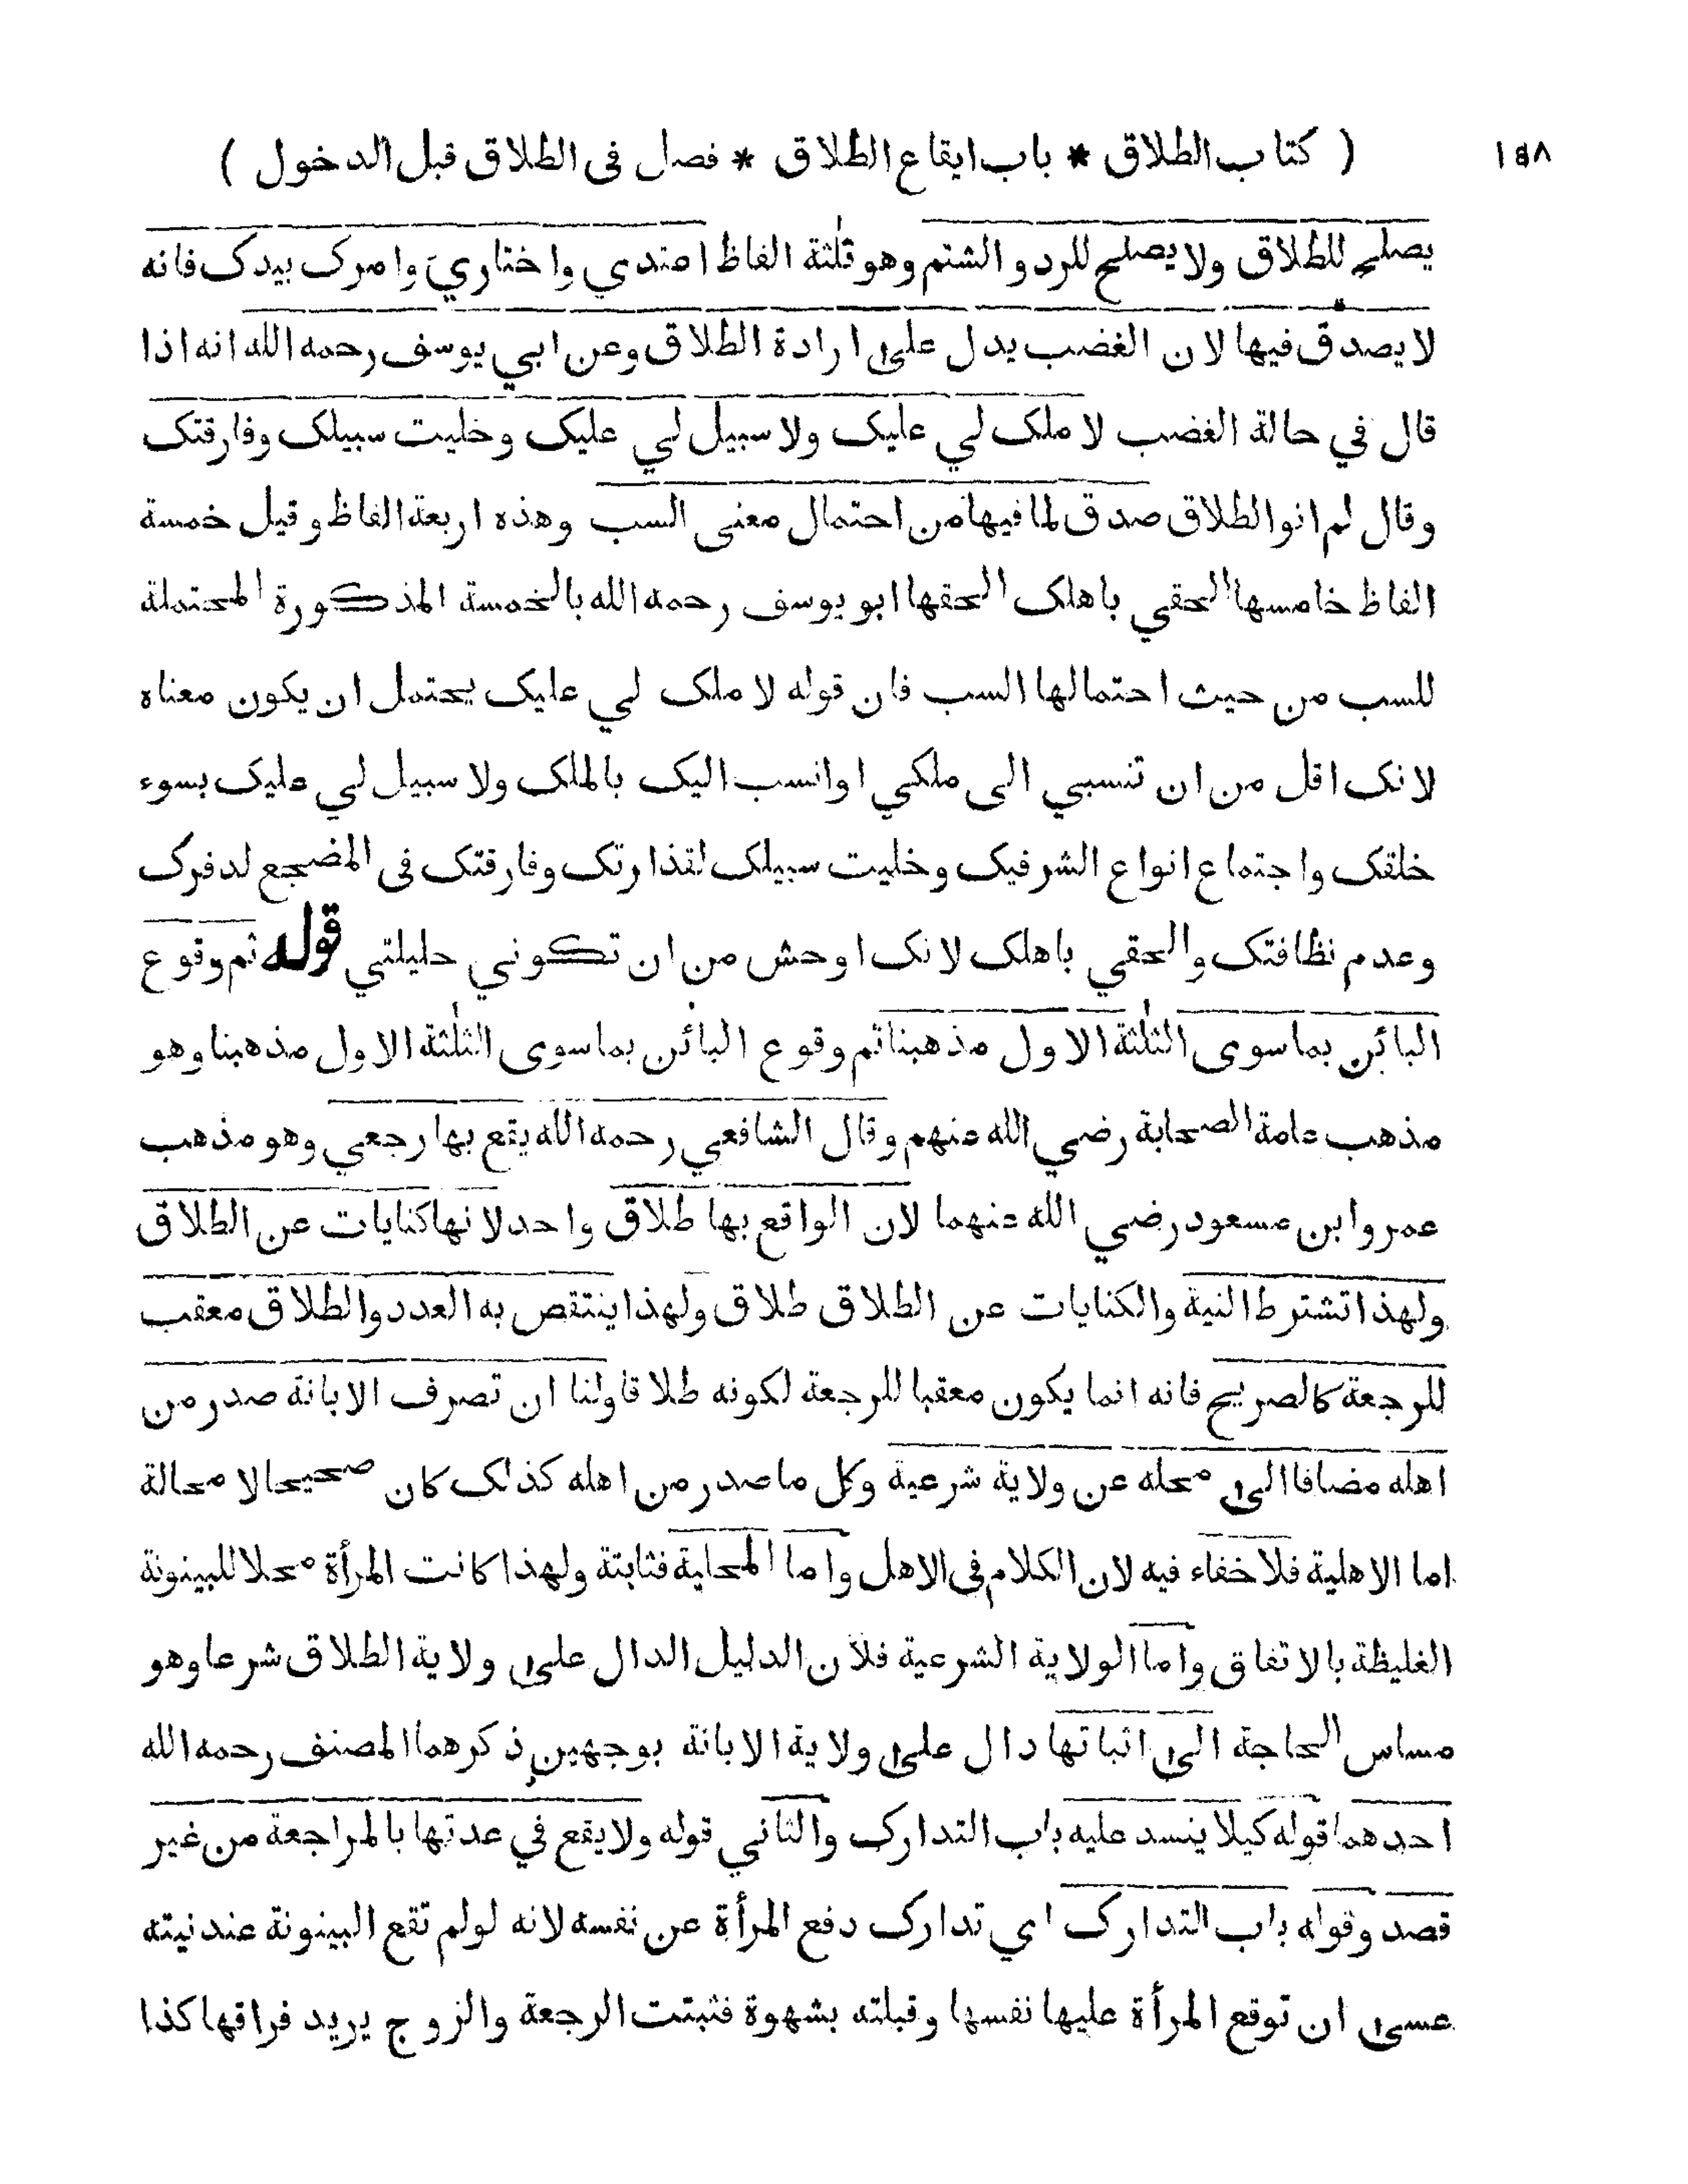 ١٥٨ ( كتاب الطلاق * باب ايقاع الطلاق * فصل فى الطلاق قبل الدخول )
يصلح للطلاق ولا يصلح للرد والشتم وهو ثلثة الفاظ اعتدي واختاري وامرك بيدك فانه
لا يصدق فيها لان الغضب يدل على ارادة الطلاق وعن ابي يوسف رحمه الله انه اذا
قال في حالة الغضب لا ملك لي عليك ولا سبيل لي عليك وخليت سبيلك وفارقتك
وقال لم انو الطلاق صدق لما فيها من احتمال معنى السب وهذه اربعة الفاظ وقيل خمسة
الفاظ خامسها الحقي باهلك الحقها ابو يوسف رحمه الله بالخمسة المذكورة المحتملة
للسب من حيث احتمالها السب فان قوله لا ملك لي عليك يحتمل ان يكون معناه
لانك اقل من ان تنسبي الى ملكي او انسب اليك بالملك ولا سبيل لي عليك بسوء
خلقك واجتماع انواع الشر فيك وخليت سبيلك لقذارتك وفارقتك فى المضجع لدفرك
وعدم نظافتك والحقي باهلك لانك اوحش من ان تكوني حليلتي قوله ثم وقوع
البائن بما سوى الثلثة الاول مذهبنا ثم وقوع البائن بما سوى الثلثة الاول مذهبنا وهو
مذهب عامة الصحابة رضي الله عنهم وقال الشافعي رحمه الله يقع بها رجعي وهو مذهب
عمر وابن مسعود رضي الله عنهما لان الواقع بها طلاق واحد لانها كنايات عن الطلاق
ولهذا تشترط النية والكنايات عن الطلاق طلاق ولهذا ينتقص به العدد والطلاق معقب
للرجعة كالصريح فانه انما يكون معقبا للرجعة لكونه طلاقا ولنا ان تصرف الابانة صدر من
اهله مضافا الى محله عن ولاية شرعية وكل ما صدر من اهله كذلك كان صحيحا لا محالة
اما الاهلية فلا خفاء فيه لان الكلام فى الاهل واما المحلية فثابتة ولهذا كانت المرأة محلا للبينونة
الغليظة بالاتفاق واما الولاية الشرعية فلأن الدليل الدال على ولاية الطلاق شرعا وهو
مساس الحاجة الى اثباتها دال على ولاية الابانة بوجهين ذكرهما المصنف رحمه الله
احدهما قوله كيلا ينسد عليه باب التدارك والثاني قوله ولا يقع في عدتها بالمراجعة من غير
قصد وقوله باب التدارك اي تدارك دفع المرأة عن نفسه لانه لو لم تقع البينونة عند نيته
عسى ان توقع المرأة عليها نفسها وقبلته بشهوة فثبتت الرجعة والزوج يريد فراقها كذا